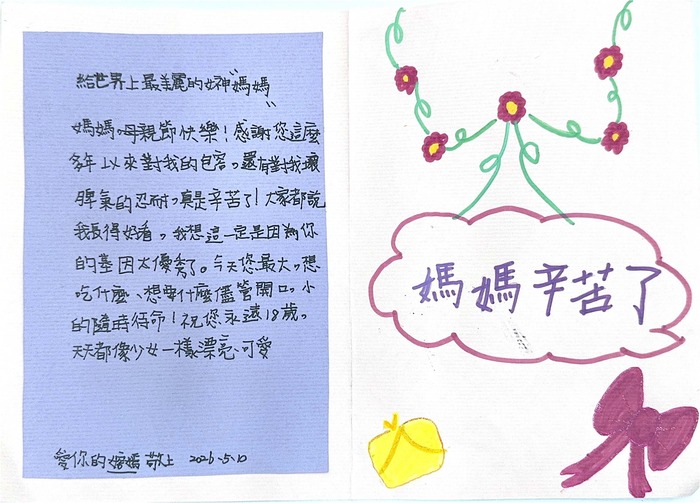 給世界上最美麗的女神"媽媽"
媽媽,母親節快樂!感謝您這麼
多年以來對我的包容,還有對我壞
脾氣的忍耐,真是辛苦了!大家都說
我長得好看,我想這一定是因為你
的基因太優秀了。今天您最大,想
吃什麼、想要什麼儘管開口。小
的隨時待命!祝您永遠18歲。
天天都像少女一樣漂亮、可愛
愛你的 敬上 2026.5.10
媽媽辛苦了